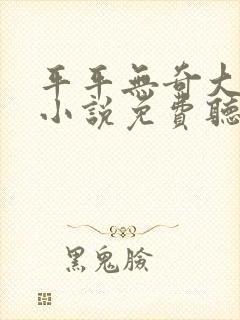 平平無奇大
小說免費聽
黑鬼臉